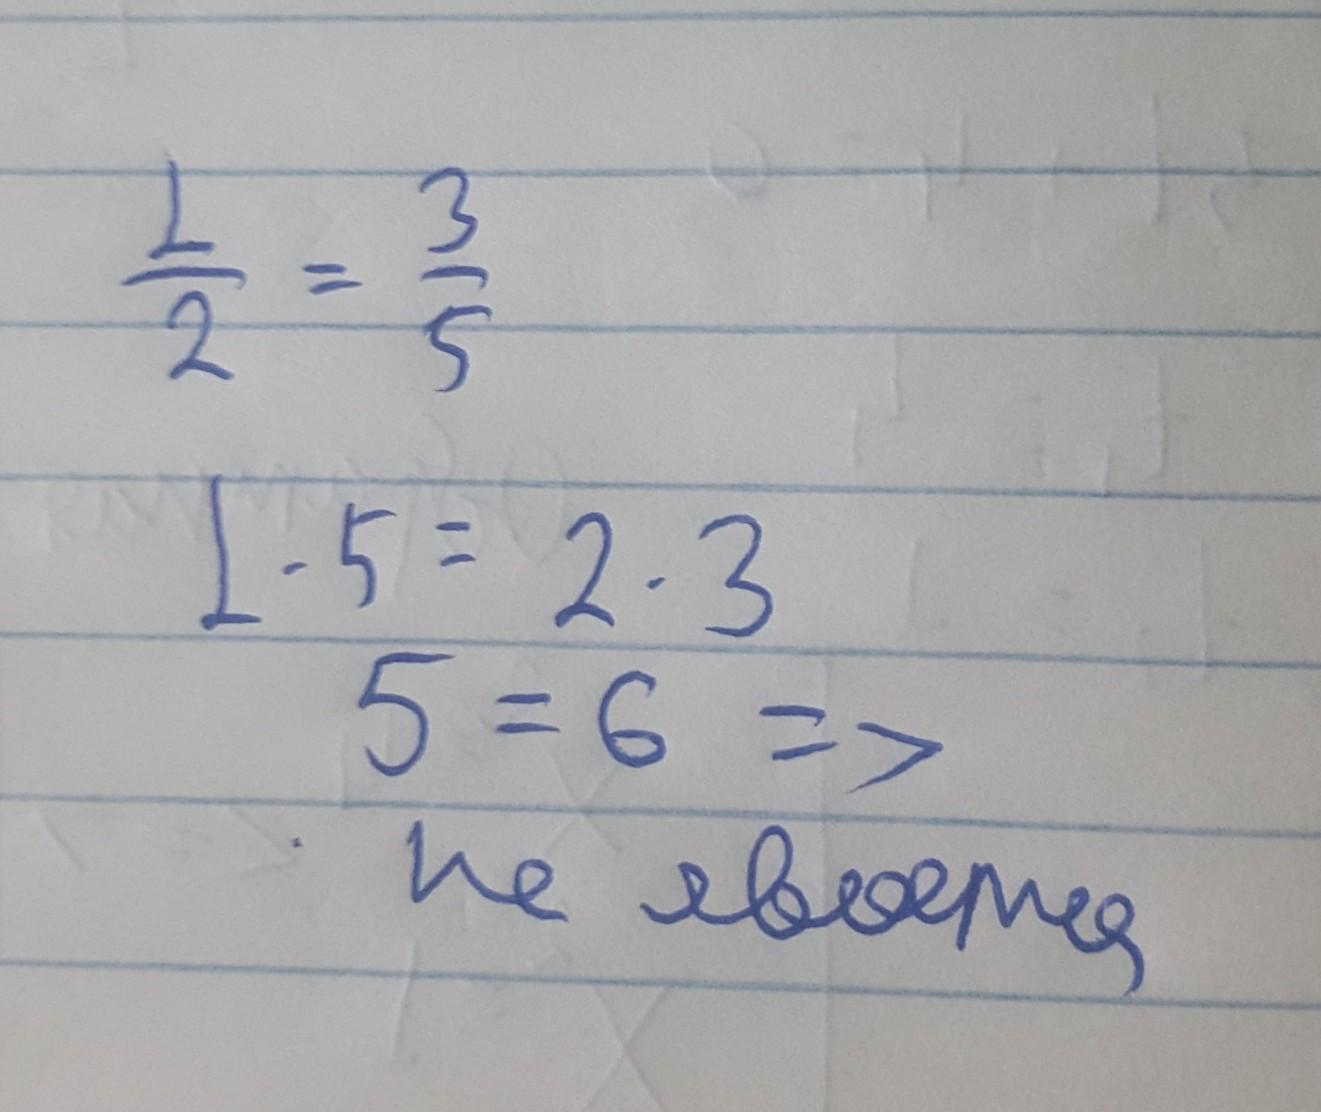 1/2 = 3/5
1 · 5 = 2 · 3
5 = 6 =>
не является